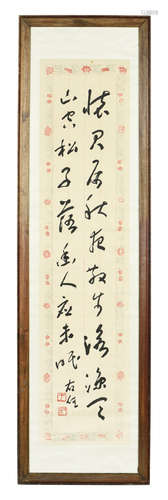 懷君屬秋夜散步詠涼天
山空松子落幽人應未眠 右任